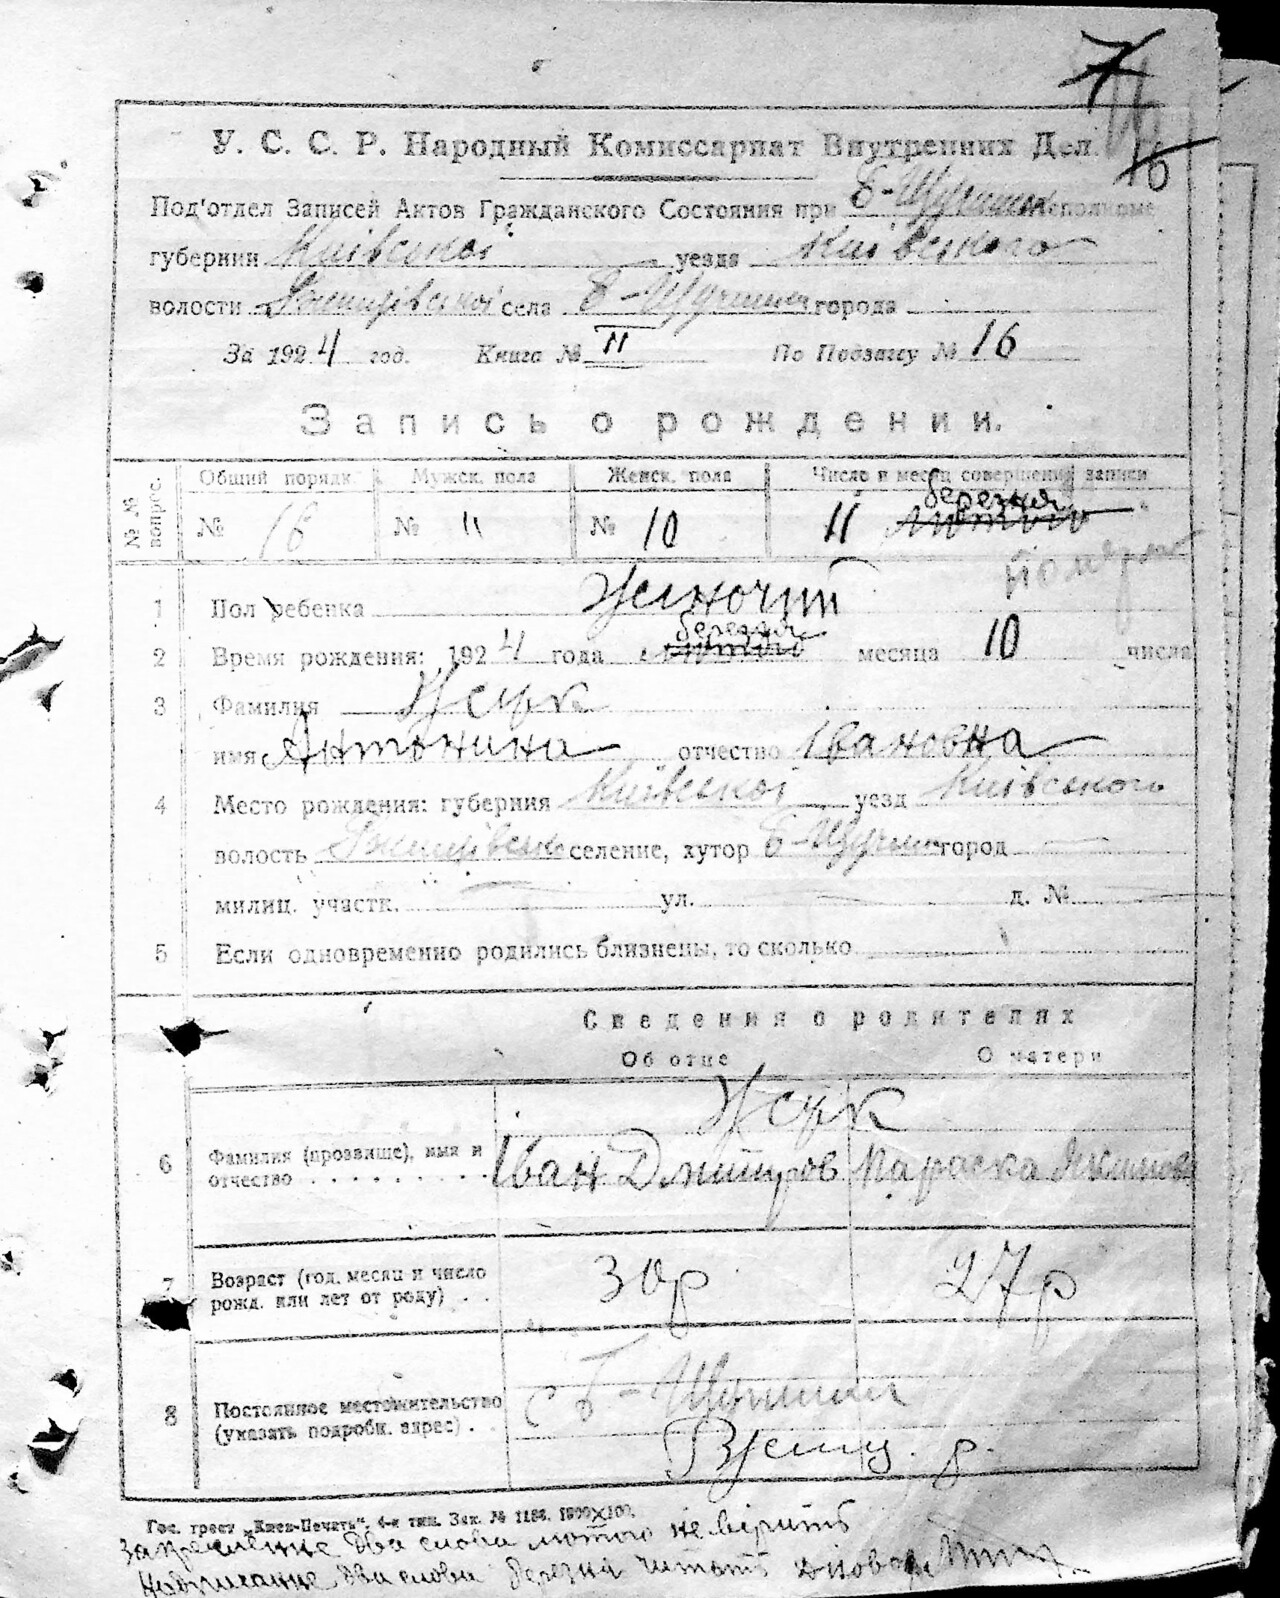 7
16
У. С. С. Р. Народный Комиссариат Внутренних Дел.
Под'отдел Записей Актов Гражданского Состояния при Б-Щучинк Исполкоме
губернии Київської уезда Київського
волости Ржищівської села Б-Щучинка города
За 1924 год. Книга № II По Подзагу № 16
Запись о рождении.
№№ вопрос. Общий порядк. Мужск. пола Женск. пола Число и месяц совершения записи
березня
№ 16 № " № 10 11 лютого
померла
1 Пол ребенка Жиночий
березня
2 Время рождения: 1924 года лютого месяца 10 числа
3 Фамилия
имя Антонина отчество Івановна
4 Место рождения: губерния Київської уезд Київського
волость Ржищівськ селение, хутор Б-Щучинк город
милиц. участк. ул. д. №
5 Если одновременно родились близнецы, то сколько
Сведения о родителях
Об отце О матери
6 Фамилия (прозвище), имя и
отчество Іван Дмитров Параска Якимов
7 Возраст (год, месяц и число
рожд. или лет от роду) 30 р 27 р
8 Постоянное местожительство
(указать подробн. адрес) с Б-Щучинка
Ржищ. р.
Гос. трест „Киев-Печать", 4-я тип. Зак. № 1186. 1800×100.
Закреслене два слова лютого не вірить
Надписанне два слова березня читать діловод